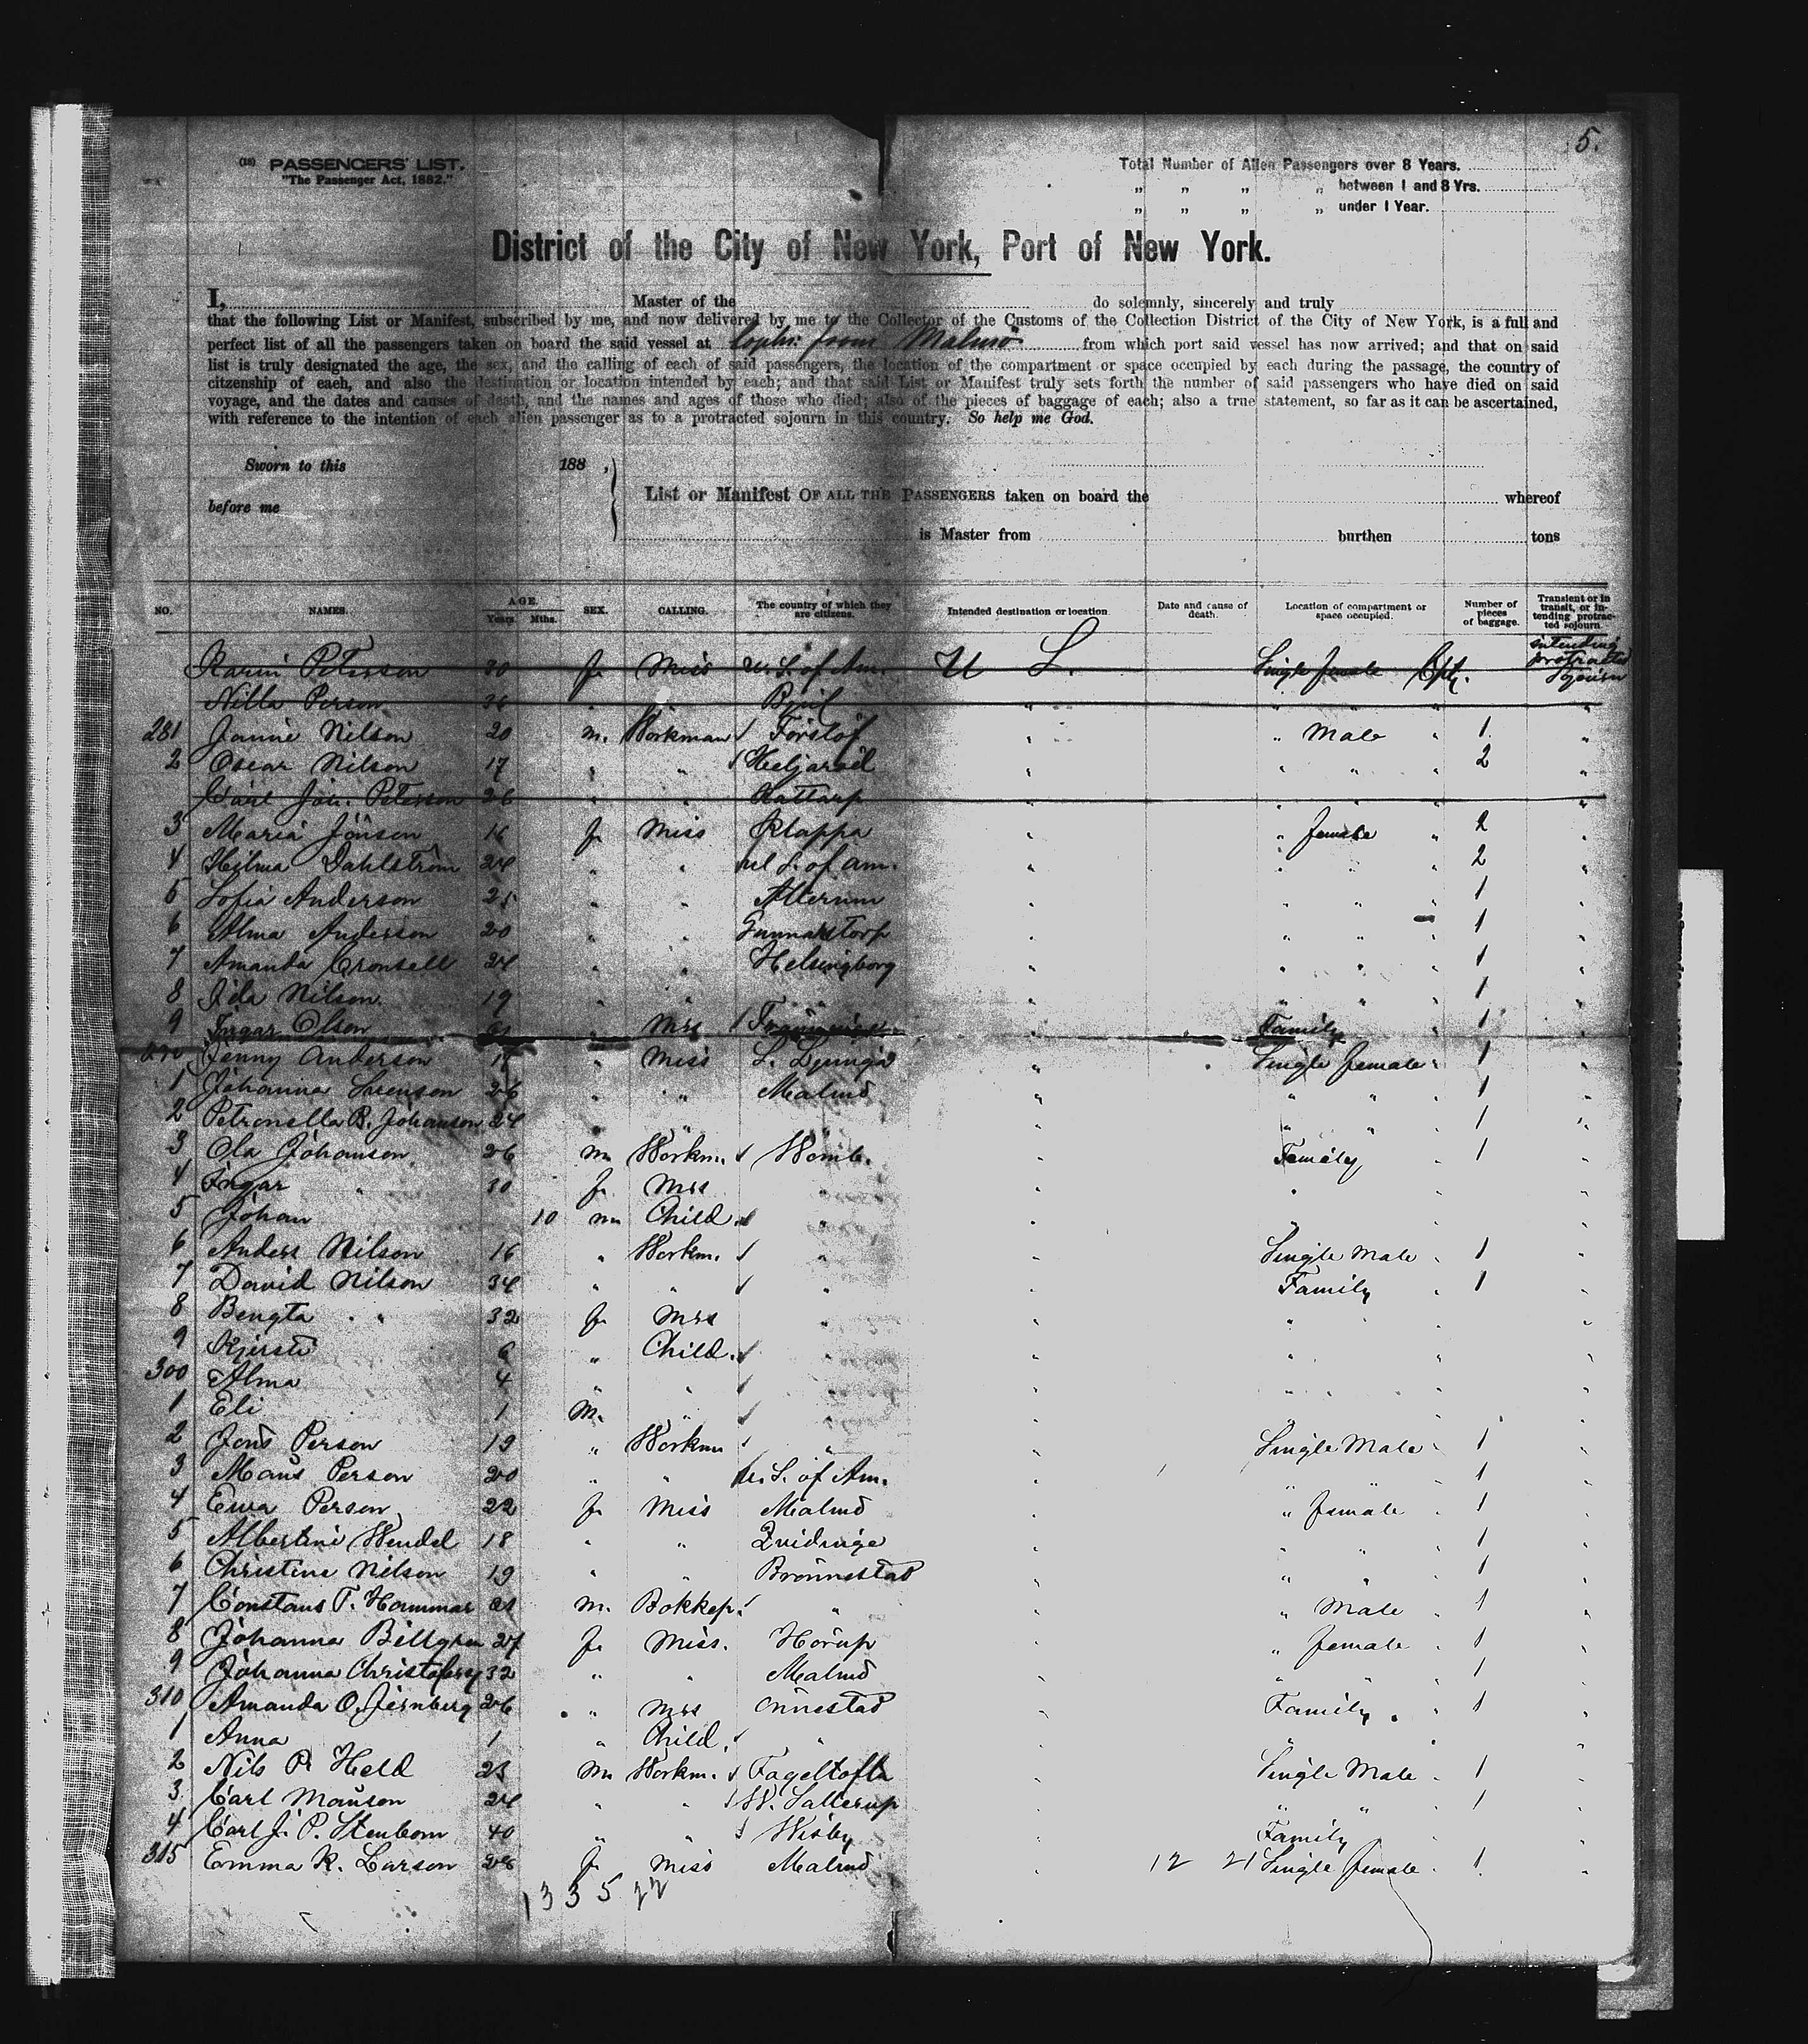 5.
(18) PASSENGERS' LIST.
"The Passenger Act, 1882."
Total Number of Alien Passengers over 8 Years.
„ „ „ „ between 1 and 8 Yrs.
„ „ „ „ under 1 Year.
District of the City of New York, Port of New York.
I, Master of the do solemnly, sincerely and truly
that the following List or Manifest, subscribed by me, and now delivered by me to the Collector of the Customs of the Collection District of the City of New York, is a full and
perfect list of all the passengers taken on board the said vessel at Coph: from Malmö from which port said vessel has now arrived; and that on said
list is truly designated the age, the sex, and the calling of each of said passengers, the location of the compartment or space occupied by each during the passage, the country of
citzenship of each, and also the destination or location intended by each; and that said List or Manifest truly sets forth the number of said passengers who have died on said
voyage, and the dates and causes of death, and the names and ages of those who died; also of the pieces of baggage of each; also a true statement, so far as it can be ascertained,
with reference to the intention of each alien passenger as to a protracted sojourn in this country. So help me God.
Sworn to this 188 ,
before me
List or Manifest OF ALL THE PASSENGERS taken on board the whereof
is Master from burthen tons
NO. NAMES. AGE. Years. Mths. SEX. CALLING. The country of which they are citizens. Intended destination or location. Date and cause of death. Location of compartment or space occupied. Number of pieces of baggage. Transient or in transit, or intending protracted sojourn.
Karin Peterson 30 f Miss U. S. of Am. U S. Single female Cpt. intending protracted sojourn
Nilla Person 36 " " " " " "
281 Jannie Nilson 20 m. Workman Förslöf " " Male " 1 "
2 Oscar Nilson 17 " " " " " " 2 "
Carl Joh. Peterson 26 " " Kattarp " " " " "
3 Maria Jönson 16 f Miss Klappa " " female " 2 "
4 Hilma Dahlström 24 " " U. S. of Am. " " " " 2 "
5 Sofia Anderson 25 " " " " " " 1 "
6 Alma Anderson 20 " " Gunnarstorp " " " " 1 "
7 Amanda Cronsell 24 " " Helsingborg " " " " 1 "
8 Ida Nilson 19 " " " " " " " 1 "
9 Ingar Olson " Mrs " Family " 1 "
290 Jenny Anderson 17 " Miss L. Ljunga " Single female " 1 "
1 Johanna Swenson 26 " " Malmö " " " " 1 "
2 Petronella B. Johanson 24 " " " " " " " 1 "
3 Ola Johanson 26 m Workm. Womb. " Family " 1 "
4 Ingar " 30 f Mrs " " " " "
5 Johan 10 m Child " " " " "
6 Anders Nilson 16 " Workm. " " Single Male " 1 "
7 David Nilson 34 " " " " Family " 1 "
8 Bengta " 32 f Mrs " " " " "
9 Kjersti 6 " Child. " " " " "
300 Alma 4 " " " " " " "
1 Eli 1 m. " " " " " "
2 Jöns Person 19 " Workm " " Single Male " 1 "
3 Mans Person 20 " " U. S. of Am. " " " " 1 "
4 Ewa Person 22 f Miss Malmö " " female " 1 "
5 Albertine Wendel 18 " " Qvidinge " " " " 1 "
6 Christine Nilson 19 " " Brönnestad " " " " 1 "
7 Constans T. Hammar 21 m. Bokkep. " " " Male " 1 "
8 Johanna Billgren f Miss. Hörup " " female " 1 "
9 Johanna 32 " " Malmö " " " " 1 "
310 Amanda O. Jernberg 26 " Mrs Önnestad " Family " 1 "
1 Anna 1 " Child. " " " " "
2 Nils P. Held 23 m Workm. Fageltofta " Single Male " 1 "
3 Carl Monson 24 " " W. Sallerup " " " " 1 "
4 Carl J. P. Stenbom 40 " " Wisby " Family
315 Emma K. Larson 28 f Miss Malmö " 12 21 Single female " 1 "
13 35 22